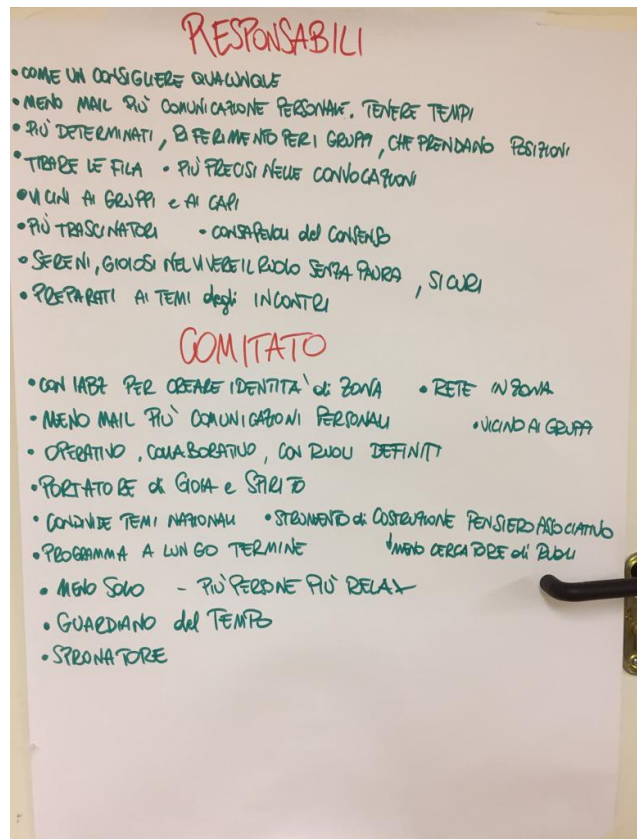 RESPONSABILI
• COME UN CONSIGLIERE QUALUNQUE
• MENO MAIL PIÙ COMUNICAZIONE PERSONALE. TENERE TEMPI
• PIÙ DETERMINATI, RIFERIMENTO PER I GRUPPI, CHE PRENDANO POSIZIONI
• TIRARE LE FILA • PIÙ PRECISI NELLE CONVOCAZIONI
• VICINI AI GRUPPI e AI CAPI
• PIÙ TRASCINATORI • CONSAPEVOLI del CONSENSO
• SERENI, GIOIOSI NEL VIVERE IL RUOLO SENZA PAURA, SICURI
• PREPARATI AI TEMI degli INCONTRI
COMITATO
• CON IABZ PER CREARE IDENTITA' di ZONA • RETE IN ZONA
• MENO MAIL PIU' COMUNICAZIONI PERSONALI • VICINO AI GRUPPI
• OPERATIVO, COLLABORATIVO, CON RUOLI DEFINITI
• PORTATORE di GIOIA e SPIRITO
• CONDIVIDE TEMI NAZIONALI • STRUMENTO di COSTRUZIONE PENSIERO ASSOCIATIVO
• PROGRAMMA A LUNGO TERMINE • MENO CERCATORE di RUOLI
• MENO SOLO - PIU' PERSONE PIU' RELAX
• GUARDIANO del TEMPO
• SPRONATORE